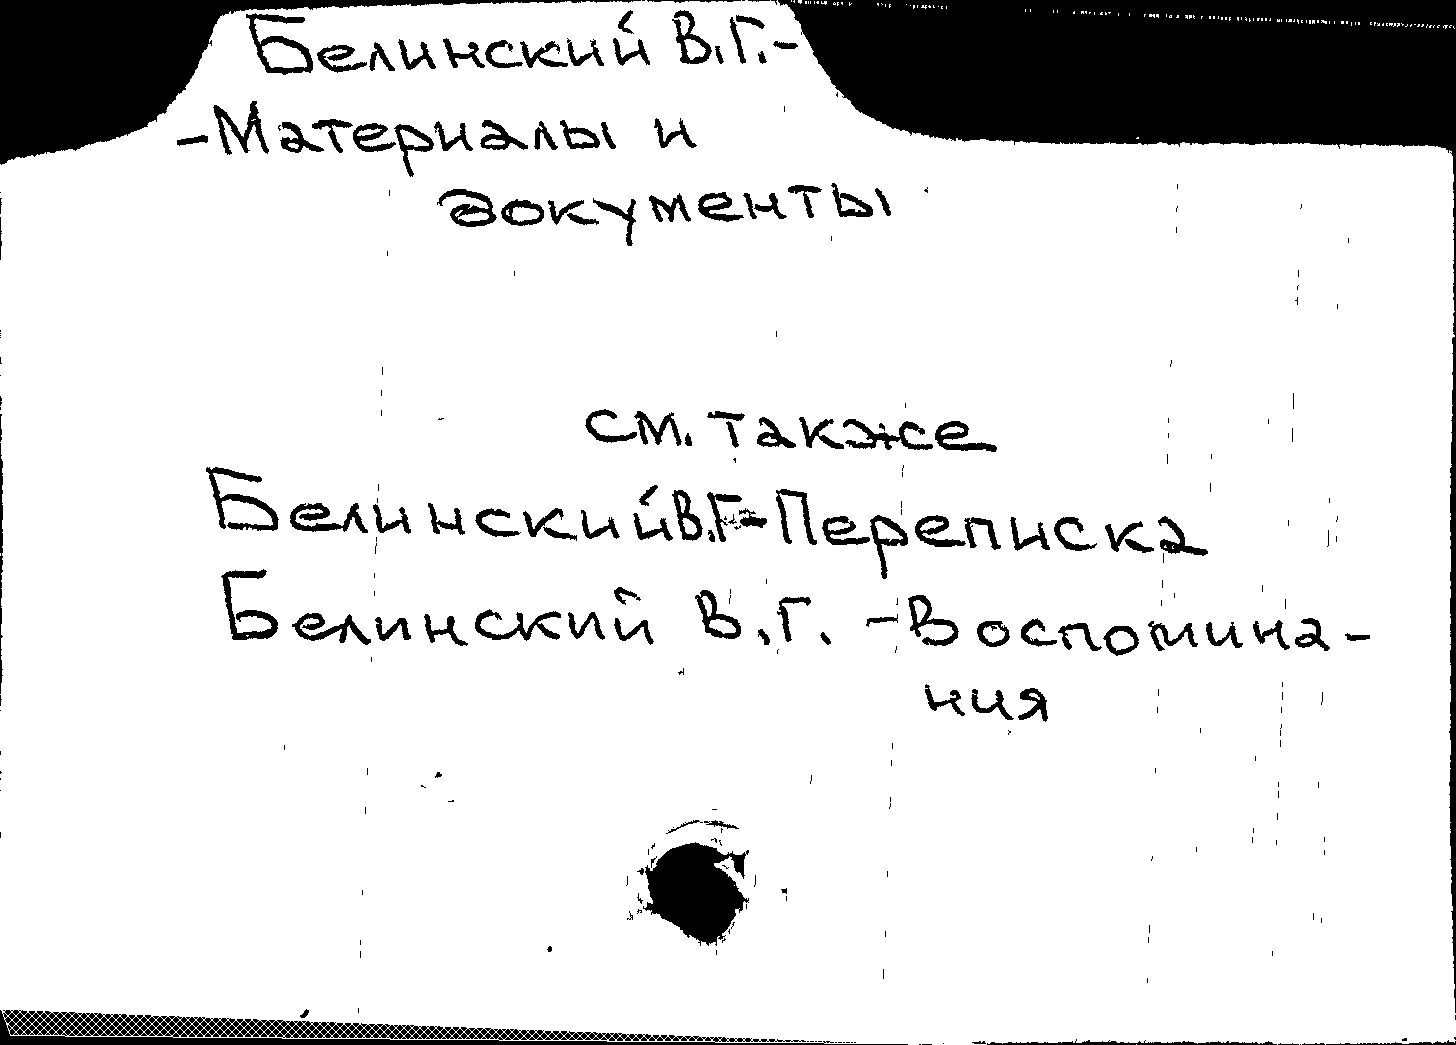 Белинский В.Г.-
-Материалы и
документы
см. также
Белинский В.Г-Переписка
Белинский В.Г. -Воспомина-
ния